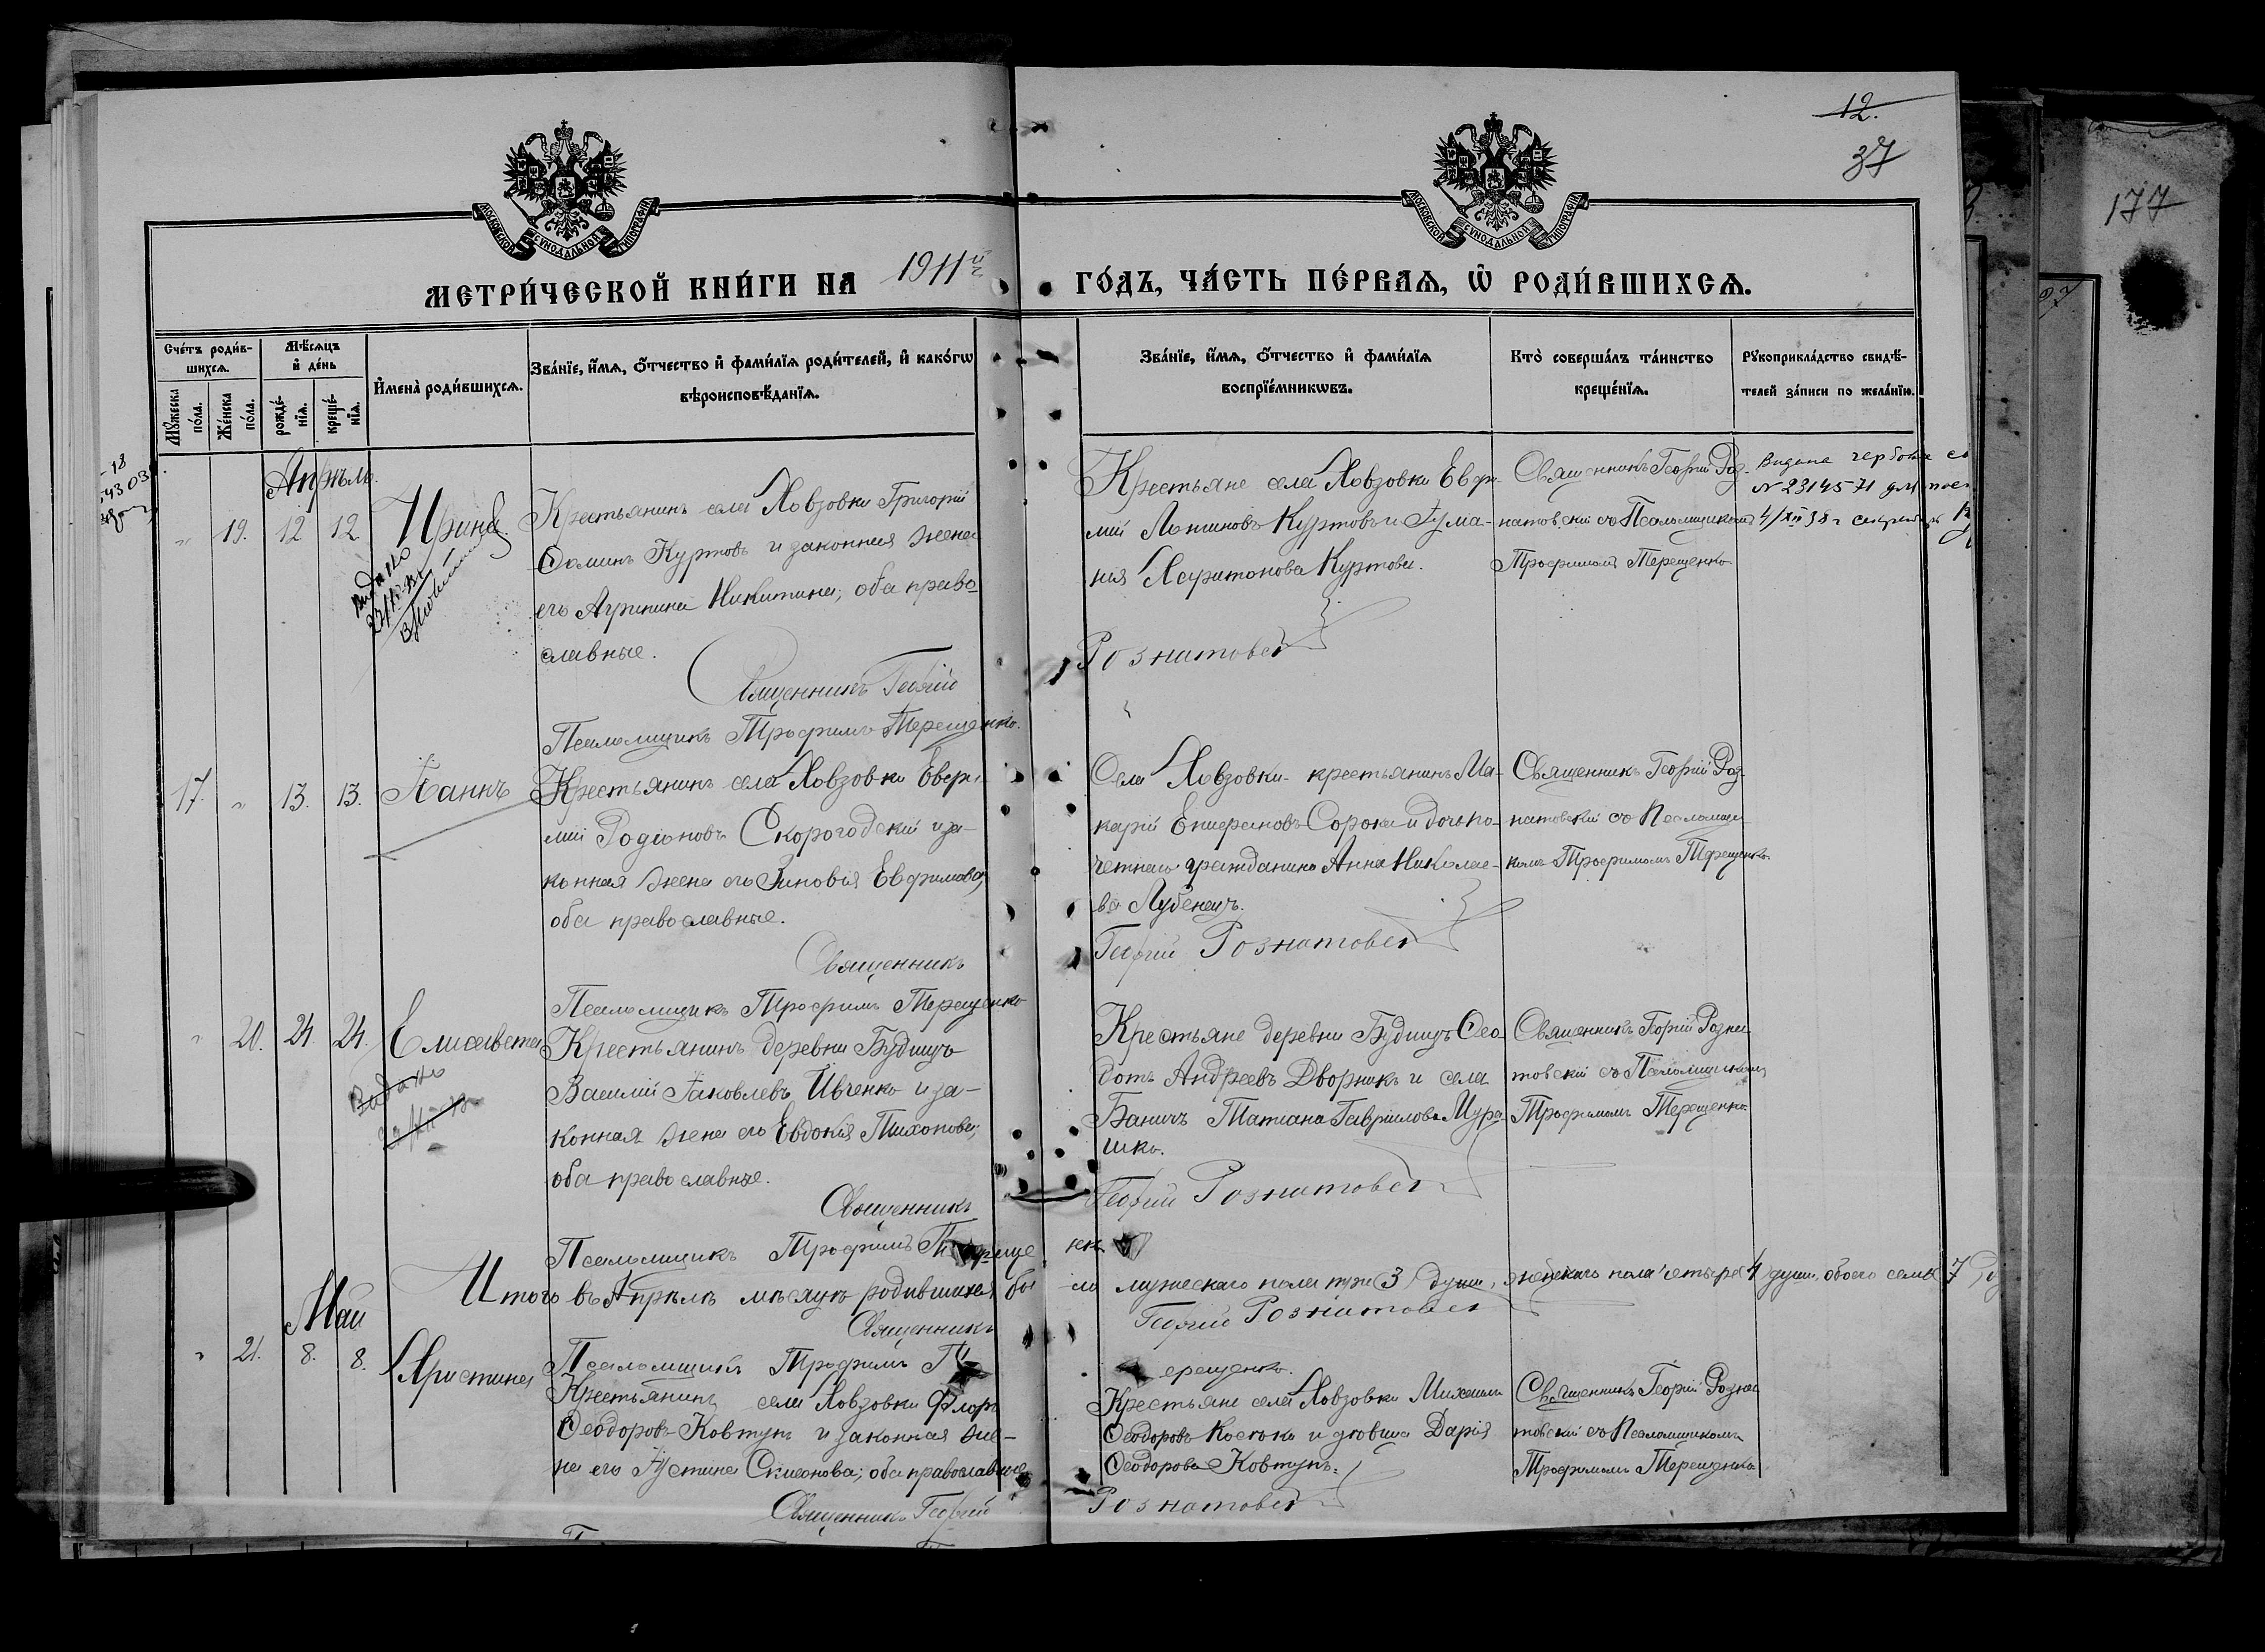 12.
37
177
МОСКОВСКОЙ СѴНОДАЛЬНОЙ ТИПОГРАФІИ
МОСКОВСКОЙ СѴНОДАЛЬНОЙ ТИПОГРАФІИ
МЕТРИ́ЧЕСКОЙ КНИ́ГИ НА 1911й
ГО́ДЪ, ЧА́СТЬ ПЕ́РВАѦ, Ѿ РОДИ́ВШИХСѦ.
Сче́тъ роди́в-
шихсѧ.
Мꙋжеска по́ла.
Же́нска по́ла.
Мѣ́сѧцъ и҆ де́нь
рожде́-нїѧ.
креще́-нїѧ.
И҆мена̀ роди́вшихсѧ.
Зва́нїе, и҆́мѧ, ѻ҆́тчество и҆ фами́лїѧ роди́телей, и҆ како́гѡ
вѣроисповѣ́данїѧ.
Зва́нїе, и҆́мѧ, ѻ҆́тчество и҆ фами́лїѧ
воспрїе́мникѡвъ.
Кто̀ соверша́лъ та́инство
креще́нїѧ.
Рꙋкоприкла́дство свидѣ́-
телей за́писи по жела́нїю.
Апрѣль.
19. 12 12 Ирина
Крестьянинъ села Ховзовки Григорій
Ѳоминъ Куртовъ и законная жена
его Агрипина Никитина, оба право
славные.
Священникъ Георгій
Псаломщикъ Трофимъ Терещенко.
Крестьяне села Ховзовки Евфи-
мій Логиновъ Куртовъ и Гума-
нія Харитонова Куртова.
Рознатовск
Священникъ Георгій Роз-
натовскій съ Псаломщикомъ
Трофимомъ Терещенко
Видана
N 2314571 для
17. 13. 13. Іаннъ
Крестьянинъ села Ховзовки Евфи-
мій Родіоновъ Скорогодскій и за-
конная жена его Зиновія Евфимова,
оба православные.
Священникъ
Псаломщикъ Трофимъ Терещенко
Села Ховзовки крестьянинъ Ма-
карій Епифановъ Сорока и дочь по-
четнаго гражданина Анна Николае-
ва Лубенецъ.
Георгій Рознатовск
Священникъ Георгій Роз-
натовскій съ Псаломщи-
комъ Трофимомъ Терещенко.
20. 24. 24. Елисавета
Видано
Крестьянинъ деревни Будищъ
Василій Іаковлевъ Ивченко и за-
конная жена его Евдокія Тихонова;
оба православные.
Священникъ
Псаломщикъ Трофимъ Тереще
нко
Крестьяне деревни Будищъ Ѳео-
дотъ Андреевъ Дворникъ и села
Баничъ Татіана Гавріилова Мура-
шко.
Георгій Рознатовск
Священникъ Георгій Розна-
товскій съ Псаломщикомъ
Трофимомъ Терещенко.
Итого въ Апрѣлѣ мѣсяцѣ родившихся бы
ло мужескаго пола три 3 души, женскаго пола четыре 4 души, обоего семь 7
Священникъ
Георгій Рознатовск
Псаломщикъ Трофимъ Т
ерещенко.
Май
21. 8. 8. Христина
Крестьянинъ села Ховзовки Флоръ
Ѳеодоровъ Ковтунъ и законная же-
на его Іустина Симеонова; оба православные
Священникъ Георгій
Крестьяне села Ховзовки Михаилъ
Ѳеодоровъ Костюкъ и девица Дарія
Ѳеодорова Ковтунъ.
Рознатовск
Священникъ Георгій Розна
товскій съ Псаломщикомъ
Трофимомъ Терещенко